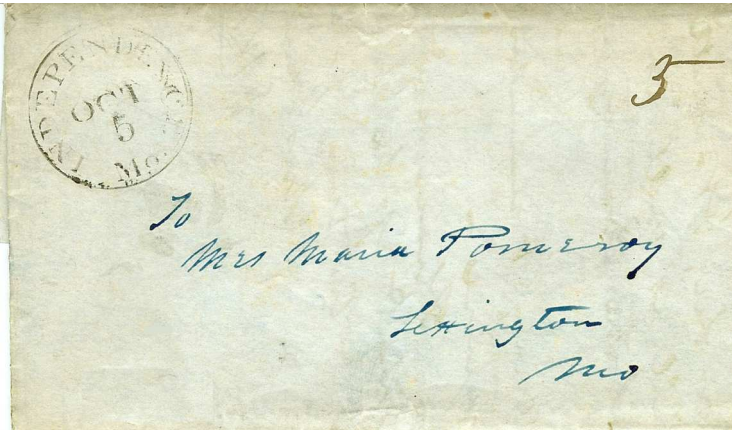 INDEPENDENCE Mo.
OCT
5
5
To
Mrs Maria Pomeroy
Lexington
Mo